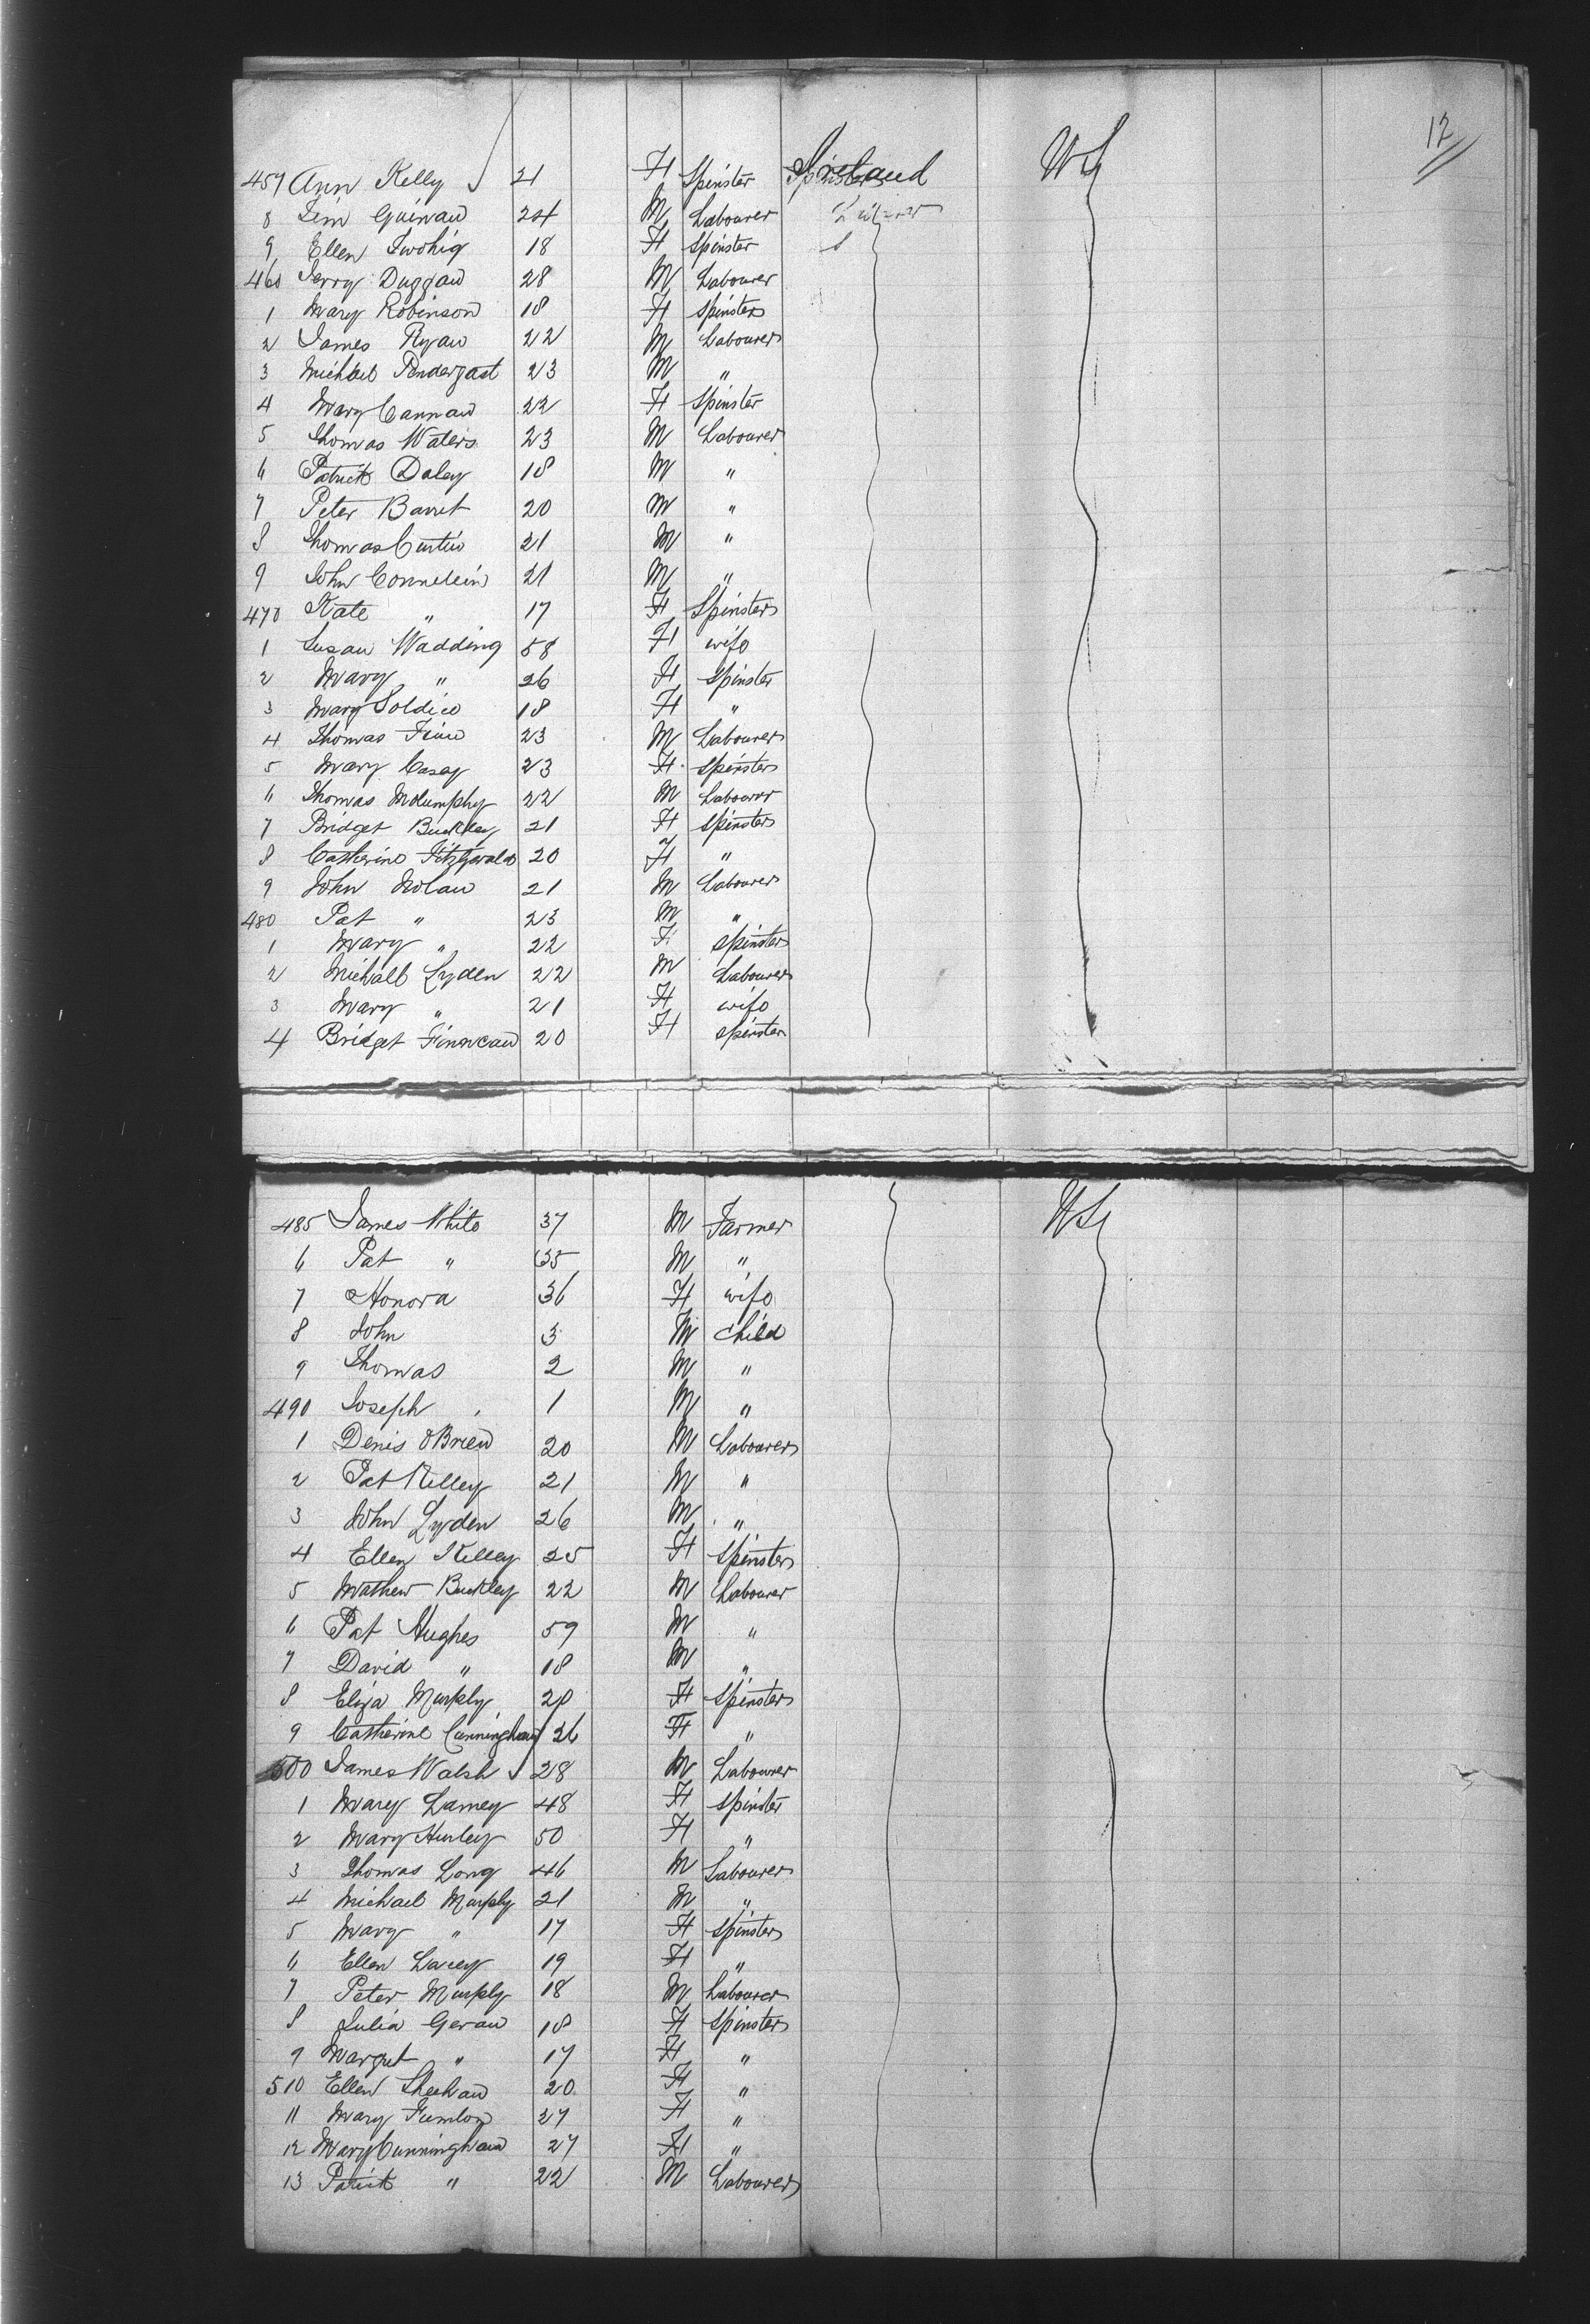 12
457 Ann Kelly 21 F Spinster Ireland US
8 Jim Guinan 24 M Labourer
9 Ellen Twohig 18 F Spinster
460 Jerry Duggan 28 M Labourer
1 Mary Robinson 18 F Spinster
2 James Ryan 22 M Labourer
3 Michael Pendergast 23 M "
4 Mary Cannan 22 F Spinster
5 Thomas Waters 23 M Labourer
6 Patrick Daley 18 M "
7 Peter Barret 20 M "
8 Thomas Curtin 21 M "
9 John 21 M "
470 Kate " 17 F Spinster
1 Susan Wadding 58 F wife
2 Mary " 26 F Spinster
3 Mary 18 F "
4 Thomas Finn 23 M Labourer
5 Mary Casey 23 F Spinster
6 Thomas 22 M Labourer
7 Bridget Buckley 21 F Spinster
8 Catherine Fitzgerald 20 F "
9 John Nolan 21 M Labourer
480 Pat " 23 M "
1 Mary " 22 F Spinster
2 Michall Lyden 22 M Labourer
3 Mary " 21 F wife
4 Bridget Finnean 20 F Spinster
485 James White 37 M Farmer US
6 Pat " 35 M "
7 Honora 36 F wife
8 John 3 M child
9 Thomas 2 M "
490 Joseph 1 M "
1 Denis OBrien 20 M Labourer
2 Pat Kelley 21 M "
3 John Lyden 26 M "
4 Ellen Kelley 25 F Spinster
5 Mathew Buckley 22 M Labourer
6 Pat Hughes 59 M "
7 David " 18 M "
8 Eliza Murphy 20 F Spinster
9 Catherine Cunningham 26 F "
500 James Walsh 28 M Labourer
1 Mary Lamey 48 F Spinster
2 Mary Hurley 50 F "
3 Thomas Long 46 M Labourer
4 Michael Murphy 21 M "
5 Mary " 17 F Spinster
6 Ellen Lacey 19 F "
7 Peter Murphy 18 M Labourer
8 Julia Geran 18 F Spinster
9 Margret " 17 F "
510 Ellen Sheehan 20 F "
11 Mary 27 F "
12 Mary Cunningham 27 F "
13 Patrick " 22 M Labourer